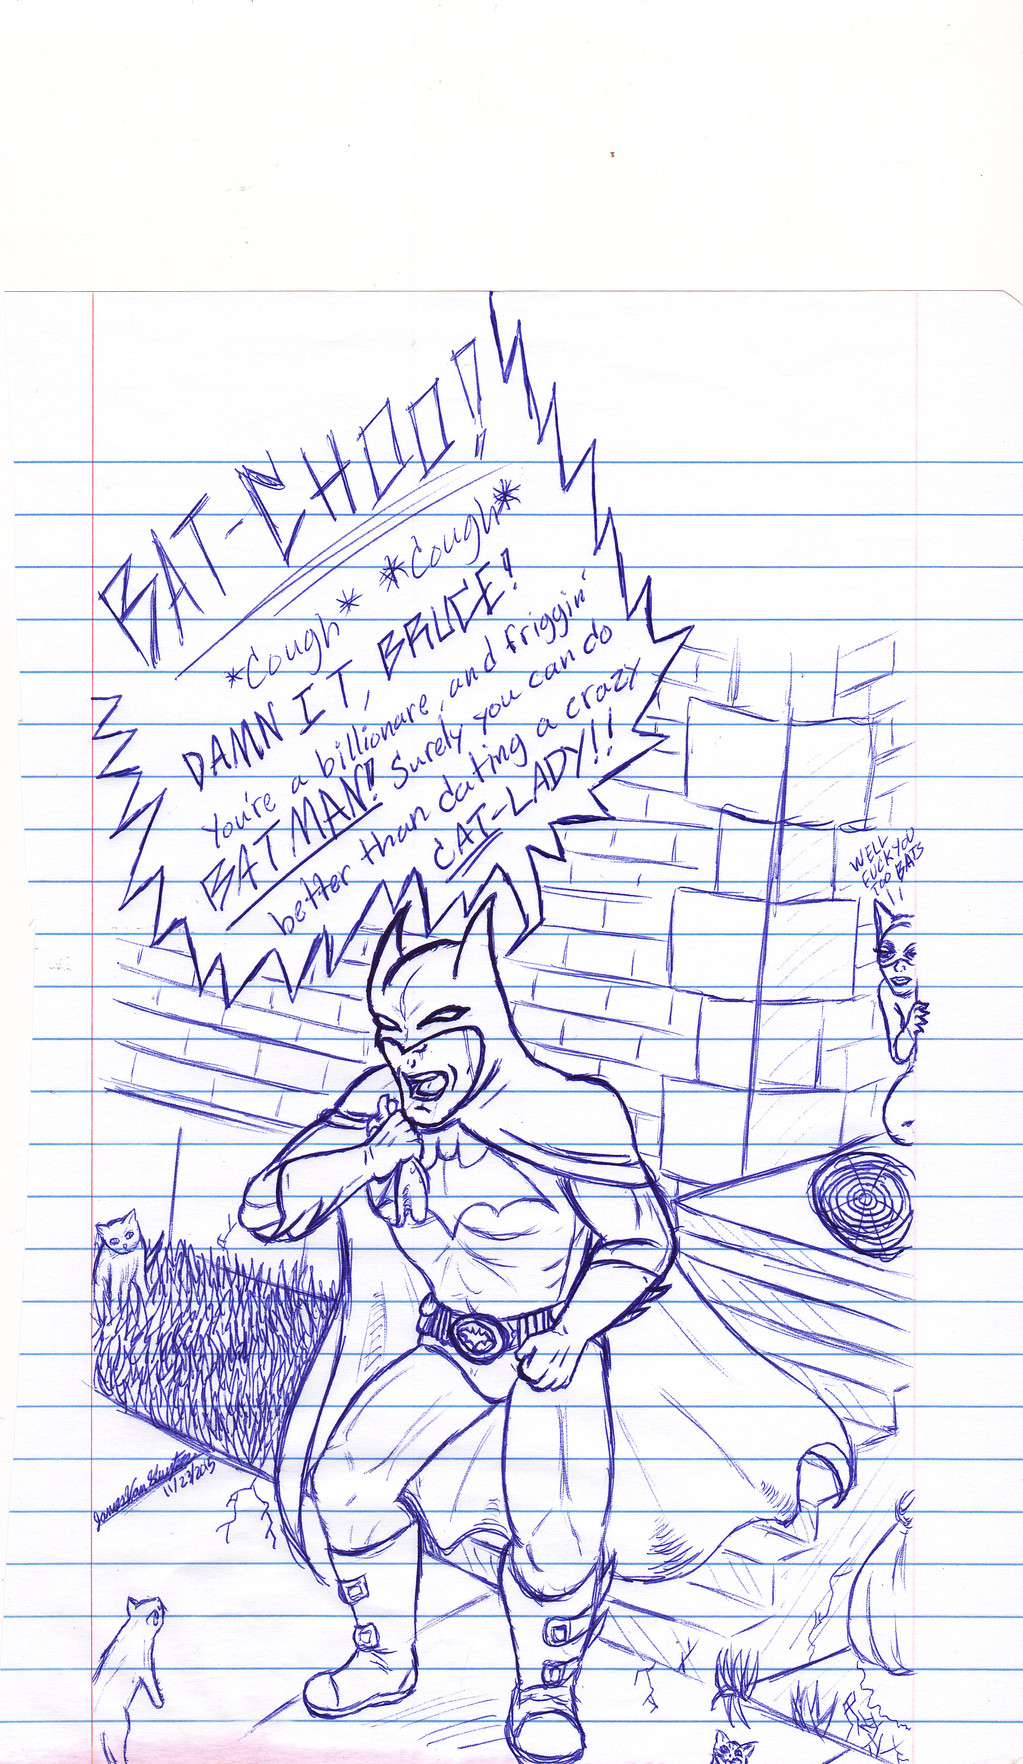 BAT-CHOO!
*Cough* *Cough*
DAMN IT, BRUCE!
You're a billionare, and friggin'
BATMAN! Surely you can do
better than dating a crazy
CAT-LADY!!
WELL
FUCK YOU
TOO BATS
!!
11/23/2015